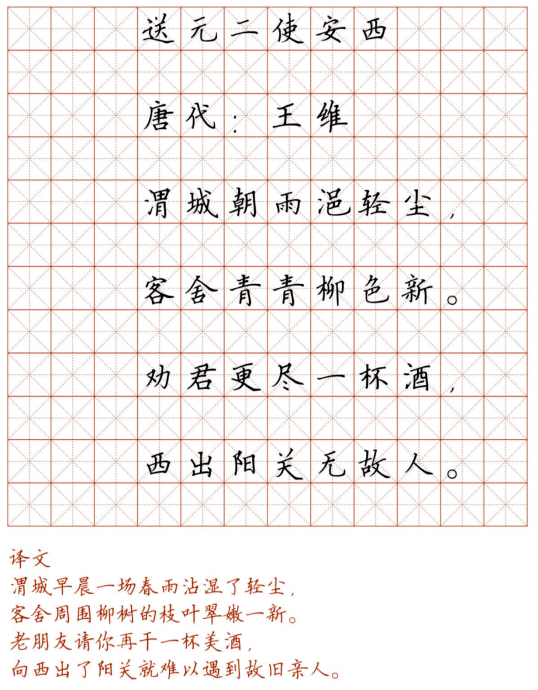 送元二使安西
唐代：王维
渭城朝雨浥轻尘，
客舍青青柳色新。
劝君更尽一杯酒，
西出阳关无故人。
译文
渭城早晨一场春雨沾湿了轻尘，
客舍周围柳树的枝叶翠嫩一新。
老朋友请你再干一杯美酒，
向西出了阳关就难以遇到故旧亲人。